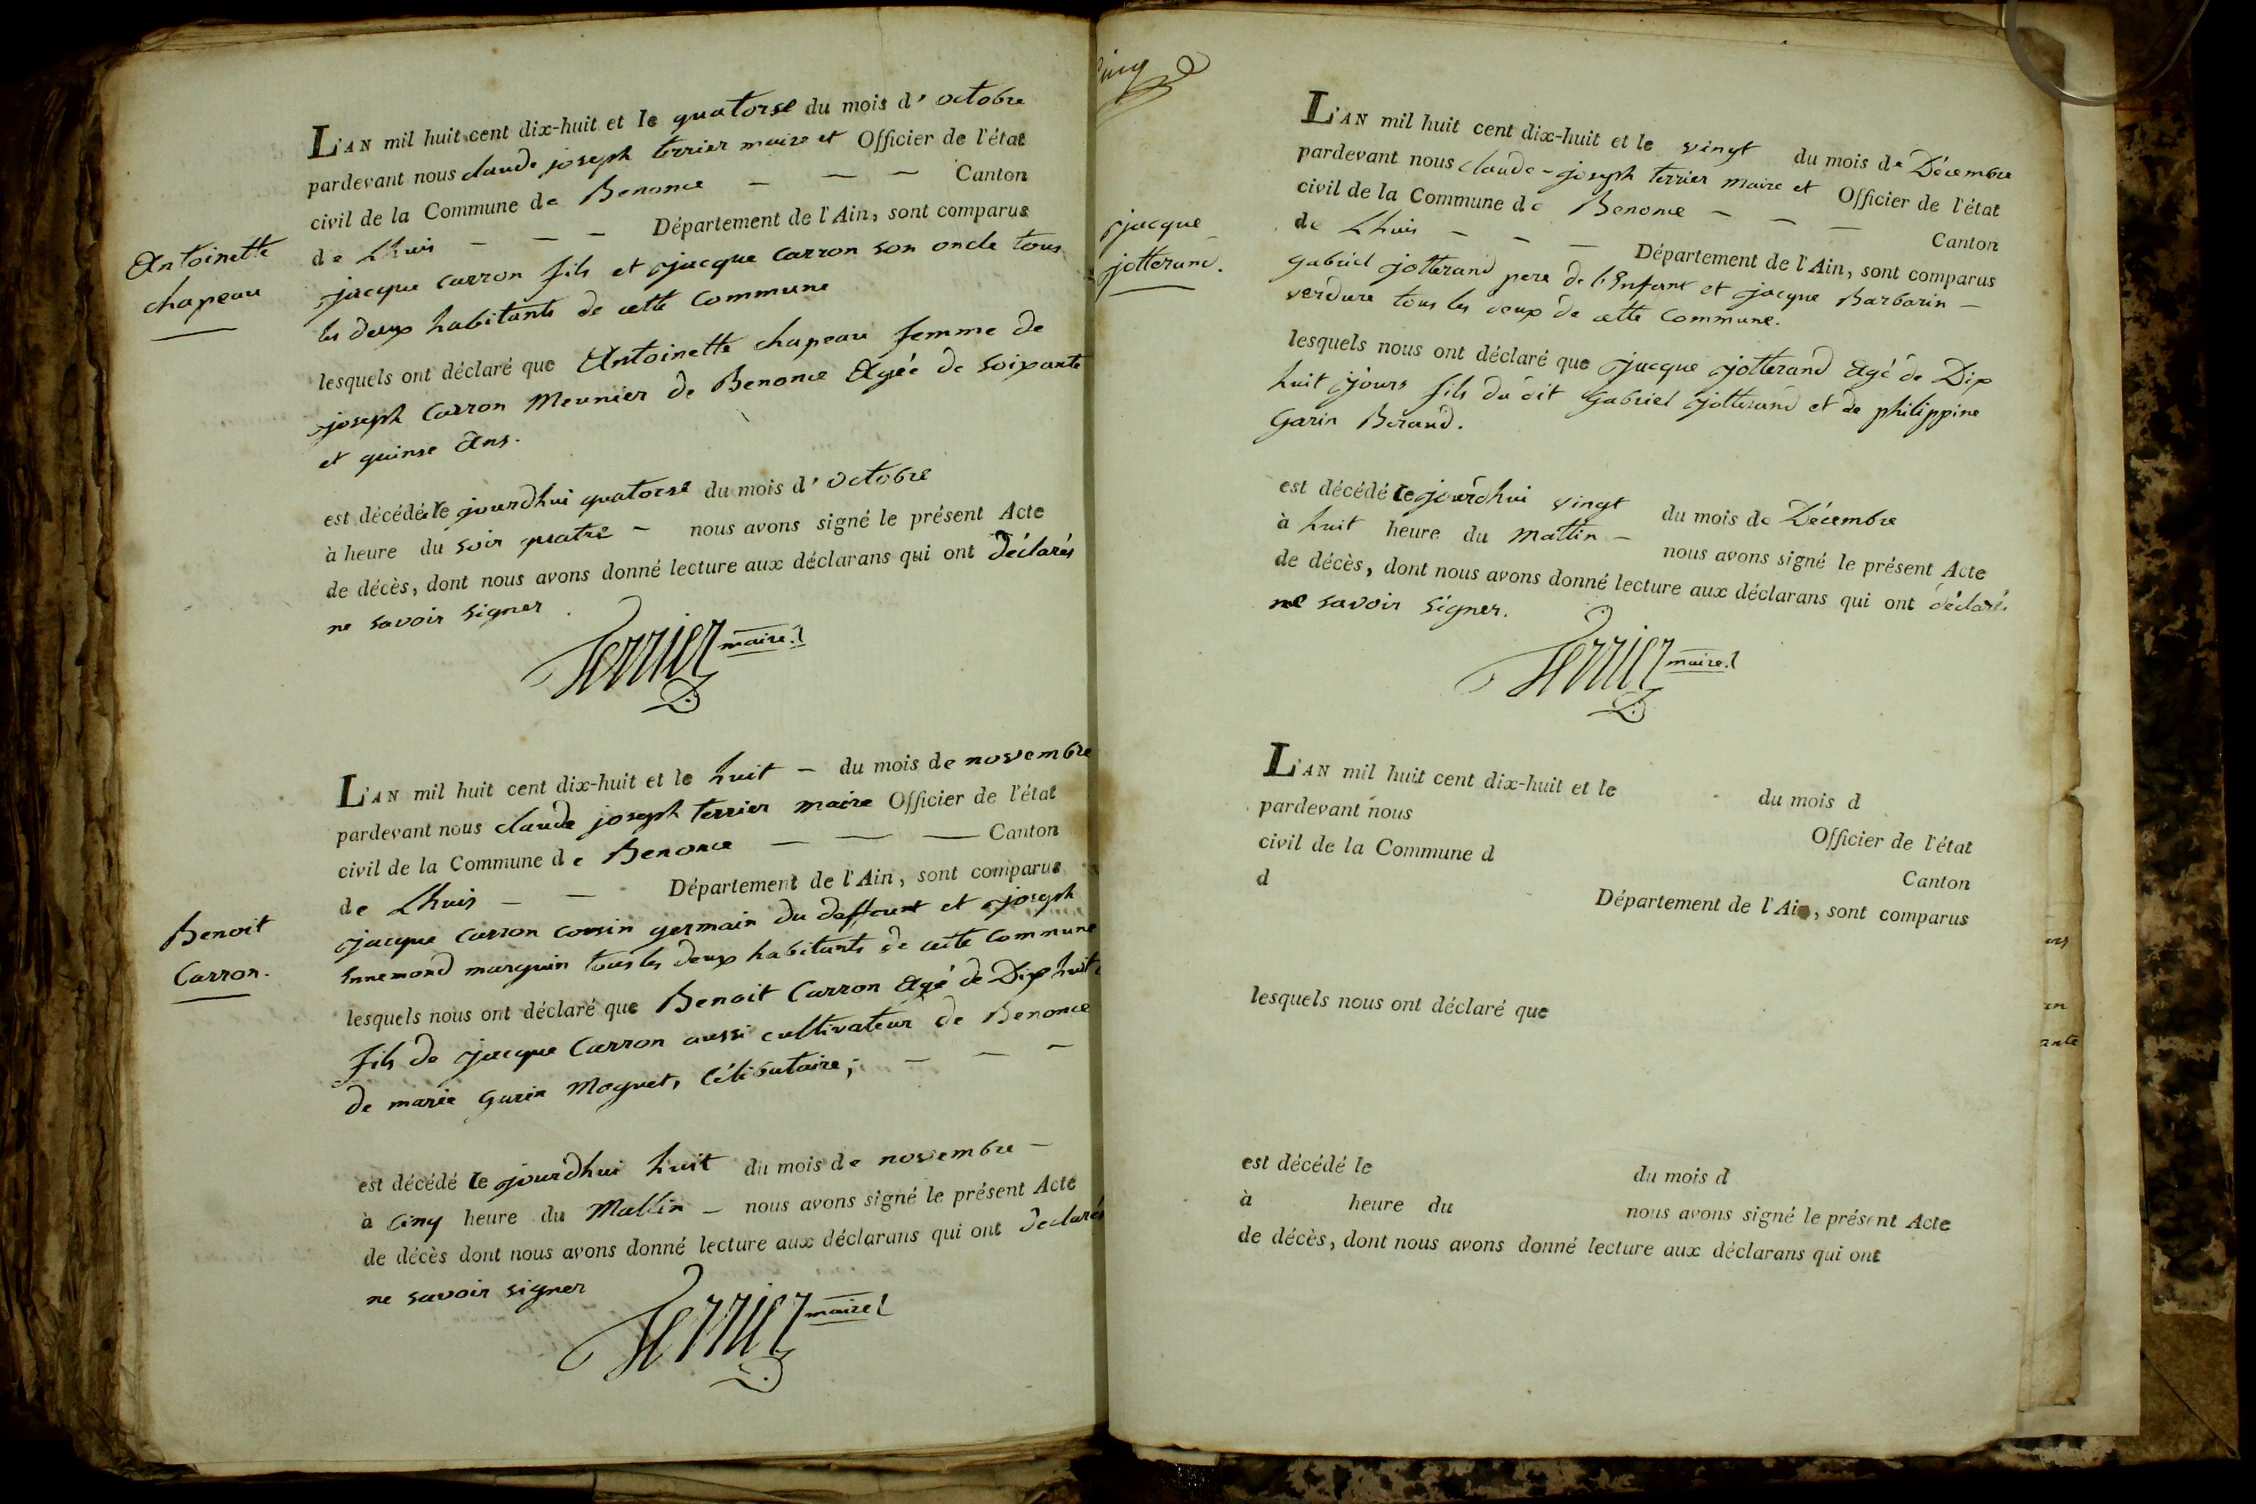 Antoinette
chapeau
L'AN mil huit cent dix-huit et le quatorse du mois d'octobre
pardevant nous claude joseph terrier maire et Officier de l'état
civil de la Commune de Benonce — — — Canton
de Lhuis — — — Département de l'Ain, sont comparus
jacque carron fils et jacque carron son oncle tous
les deux habitants de cette Commune
lesquels ont déclaré que Antoinette chapeau femme de
joseph Carron Meunier de Benonce Agée de soixante
et quinse Ans.
est décédée le jourdhui quatorse du mois d'octobre
à heure du soir quatre — nous avons signé le présent Acte
de décès, dont nous avons donné lecture aux déclarans qui ont déclarés
ne savoir signer
Terrier maire
Benoit
Carron.
L'AN mil huit cent dix-huit et le huit — du mois de novembre
pardevant nous claude joseph terrier maire Officier de l'état
civil de la Commune de Benonce — — — Canton
de Lhuis — — Département de l'Ain, sont comparus
jacque carron cousin germain du deffunt et joseph
Innemond marquin tous les deux habitants de cette Commune
lesquels nous ont déclaré que Benoit Carron Agé de Dix huit
fils de jacque Carron aussi cultivateur de Benonce
de marie Garin Moguet, Célibataire; — — —
est décédé le jourdhui huit du mois de novembre —
à Cinq heure du Mattin — nous avons signé le présent Acte
de décès dont nous avons donné lecture aux déclarans qui ont declarés
ne savoir signer
Terrier maire
jacque
jotterand.
L'AN mil huit cent dix-huit et le vingt du mois de Décembre
pardevant nous claude-joseph terrier maire et Officier de l'état
civil de la Commune de Benonce — — — Canton
de Lhuis — — — Département de l'Ain, sont comparus
gabriel jotterand pere de l'Enfant et jacque Barbarin —
verdure tous les deux de cette Commune.
lesquels nous ont déclaré que jacque jotterand Agé de Dix
huit jours fils du dit Gabriel jotterand et de philippine
Garin Beraud.
est décédé le jourdhui vingt du mois de Décembre
à huit heure du Mattin — nous avons signé le présent Acte
de décès, dont nous avons donné lecture aux déclarans qui ont déclarés
ne savoir signer.
Terrier maire
L'AN mil huit cent dix-huit et le du mois d
pardevant nous Officier de l'état
civil de la Commune d Canton
d Département de l'Ain, sont comparus
lesquels nous ont déclaré que
est décédé le du mois d
à heure du nous avons signé le présent Acte
de décès, dont nous avons donné lecture aux déclarans qui ont